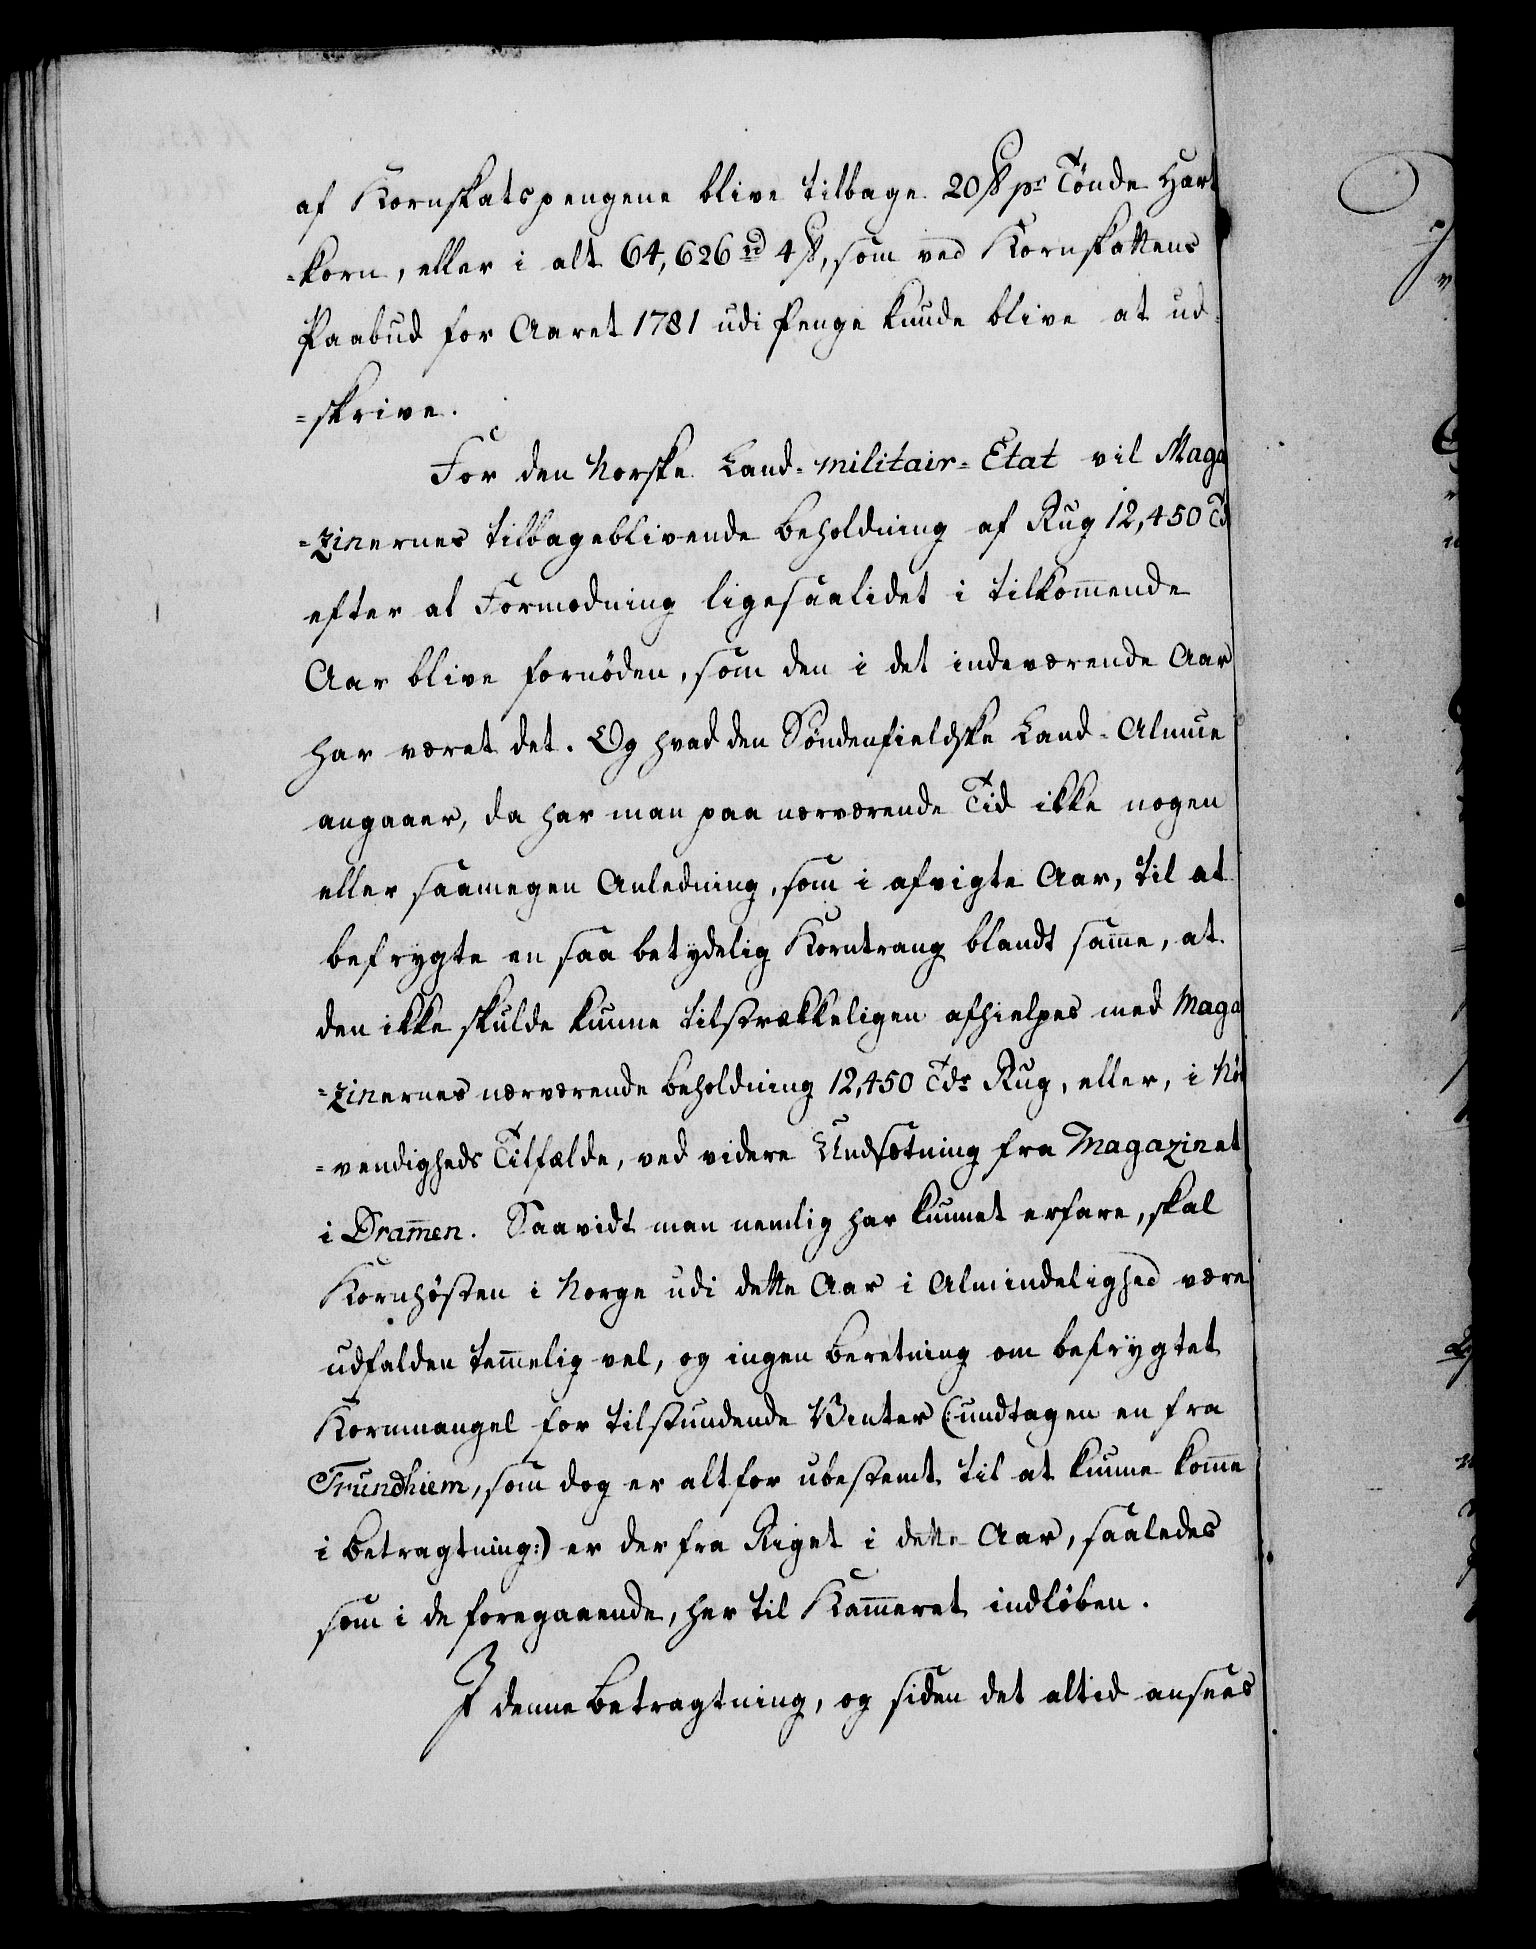 af Kornskatspengene blive tilbage 20 ß pr Tönde Hart
=korn, eller i alt 64,626 rd 4 ß, som ved Kornskattens
Paabud for Aaret 1781 udi Penge kunde blive at ud=
=skrive.
For den Norske Land=militair=Etat vil Maga
=zinernes tilbageblivende Beholdning af Rug 12,450 Td
efter al Formodning ligesaalidet i tilkom̄ende
Aar blive fornöden, som den i det indeværende Aar
har været det. Og hvad den Söndenfieldske Land=Almue
angaaer, da har man paa nærværende Tid ikke nogen
eller saamegen Anledning, som i afvigte Aar, til at
befrygte en saa betydelig Korntrang blandt sam̄e, at
den ikke skulde kunne tilstrækkeligen afhielpes med Maga
=zinernes nærværende Beholdning 12,450 Tdr Rug, eller, i Nöd
=vendigheds Tilfælde, ved videre Undsætning fra Magazinet
i Dram̄en. Saavidt man nemlig har kunnet erfare, skal
Kornhösten i Norge udi dette Aar i Almindelighed være
udfalden tem̄elig vel, og ingen Beretning om befrygtet
Kornmangel for tilstundende Vinter (: undtagen en fra
Trundhiem, som dog er altfor ubestemt til at kunne kom̄e
i Betragtning:) er der fra Riget i dette Aar, saaledes
som i de foregaaende, her til Kam̄eret indlöben.
I denne Betragtning, og siden det altid ansees